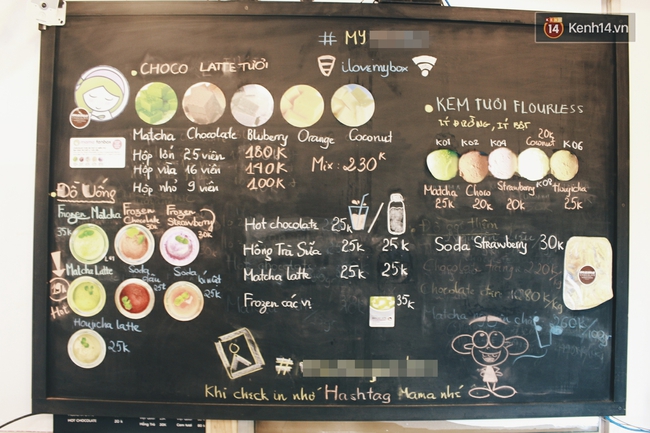 14 Kenh14.vn
# MY
ilovemybox
CHOCO LATTE TƯƠI
Matcha Chocolate Bluberry Orange Coconut
Hộp lớn 25 viên 180K
Hộp vừa 16 viên 140K
Hộp nhỏ 9 viên 100K
Mix: 230K
KEM TƯƠI FLOURLESS
ÍT ĐƯỜNG, ÍT BÉO
20K
K01 K02 K04 Coconut K06
Matcha Choco Strawberry K08 Houjicha
25k 20k 20k 25k
Đồ Uống
Frozen Matcha 35k
Frozen Chocolate 30k
Frozen Strawberry 30k
Matcha Latte
Soda dâu 25k
Soda 25k
Houjicha latte
25k
Hot chocolate 25k
Hồng Trà Sữa 25k 25k
Matcha latte 25k 25k
Frozen các vị 35k
Soda Strawberry 30K
#
Khi check in nhớ Hashtag Mama nhé
HOT CHOCOLATE